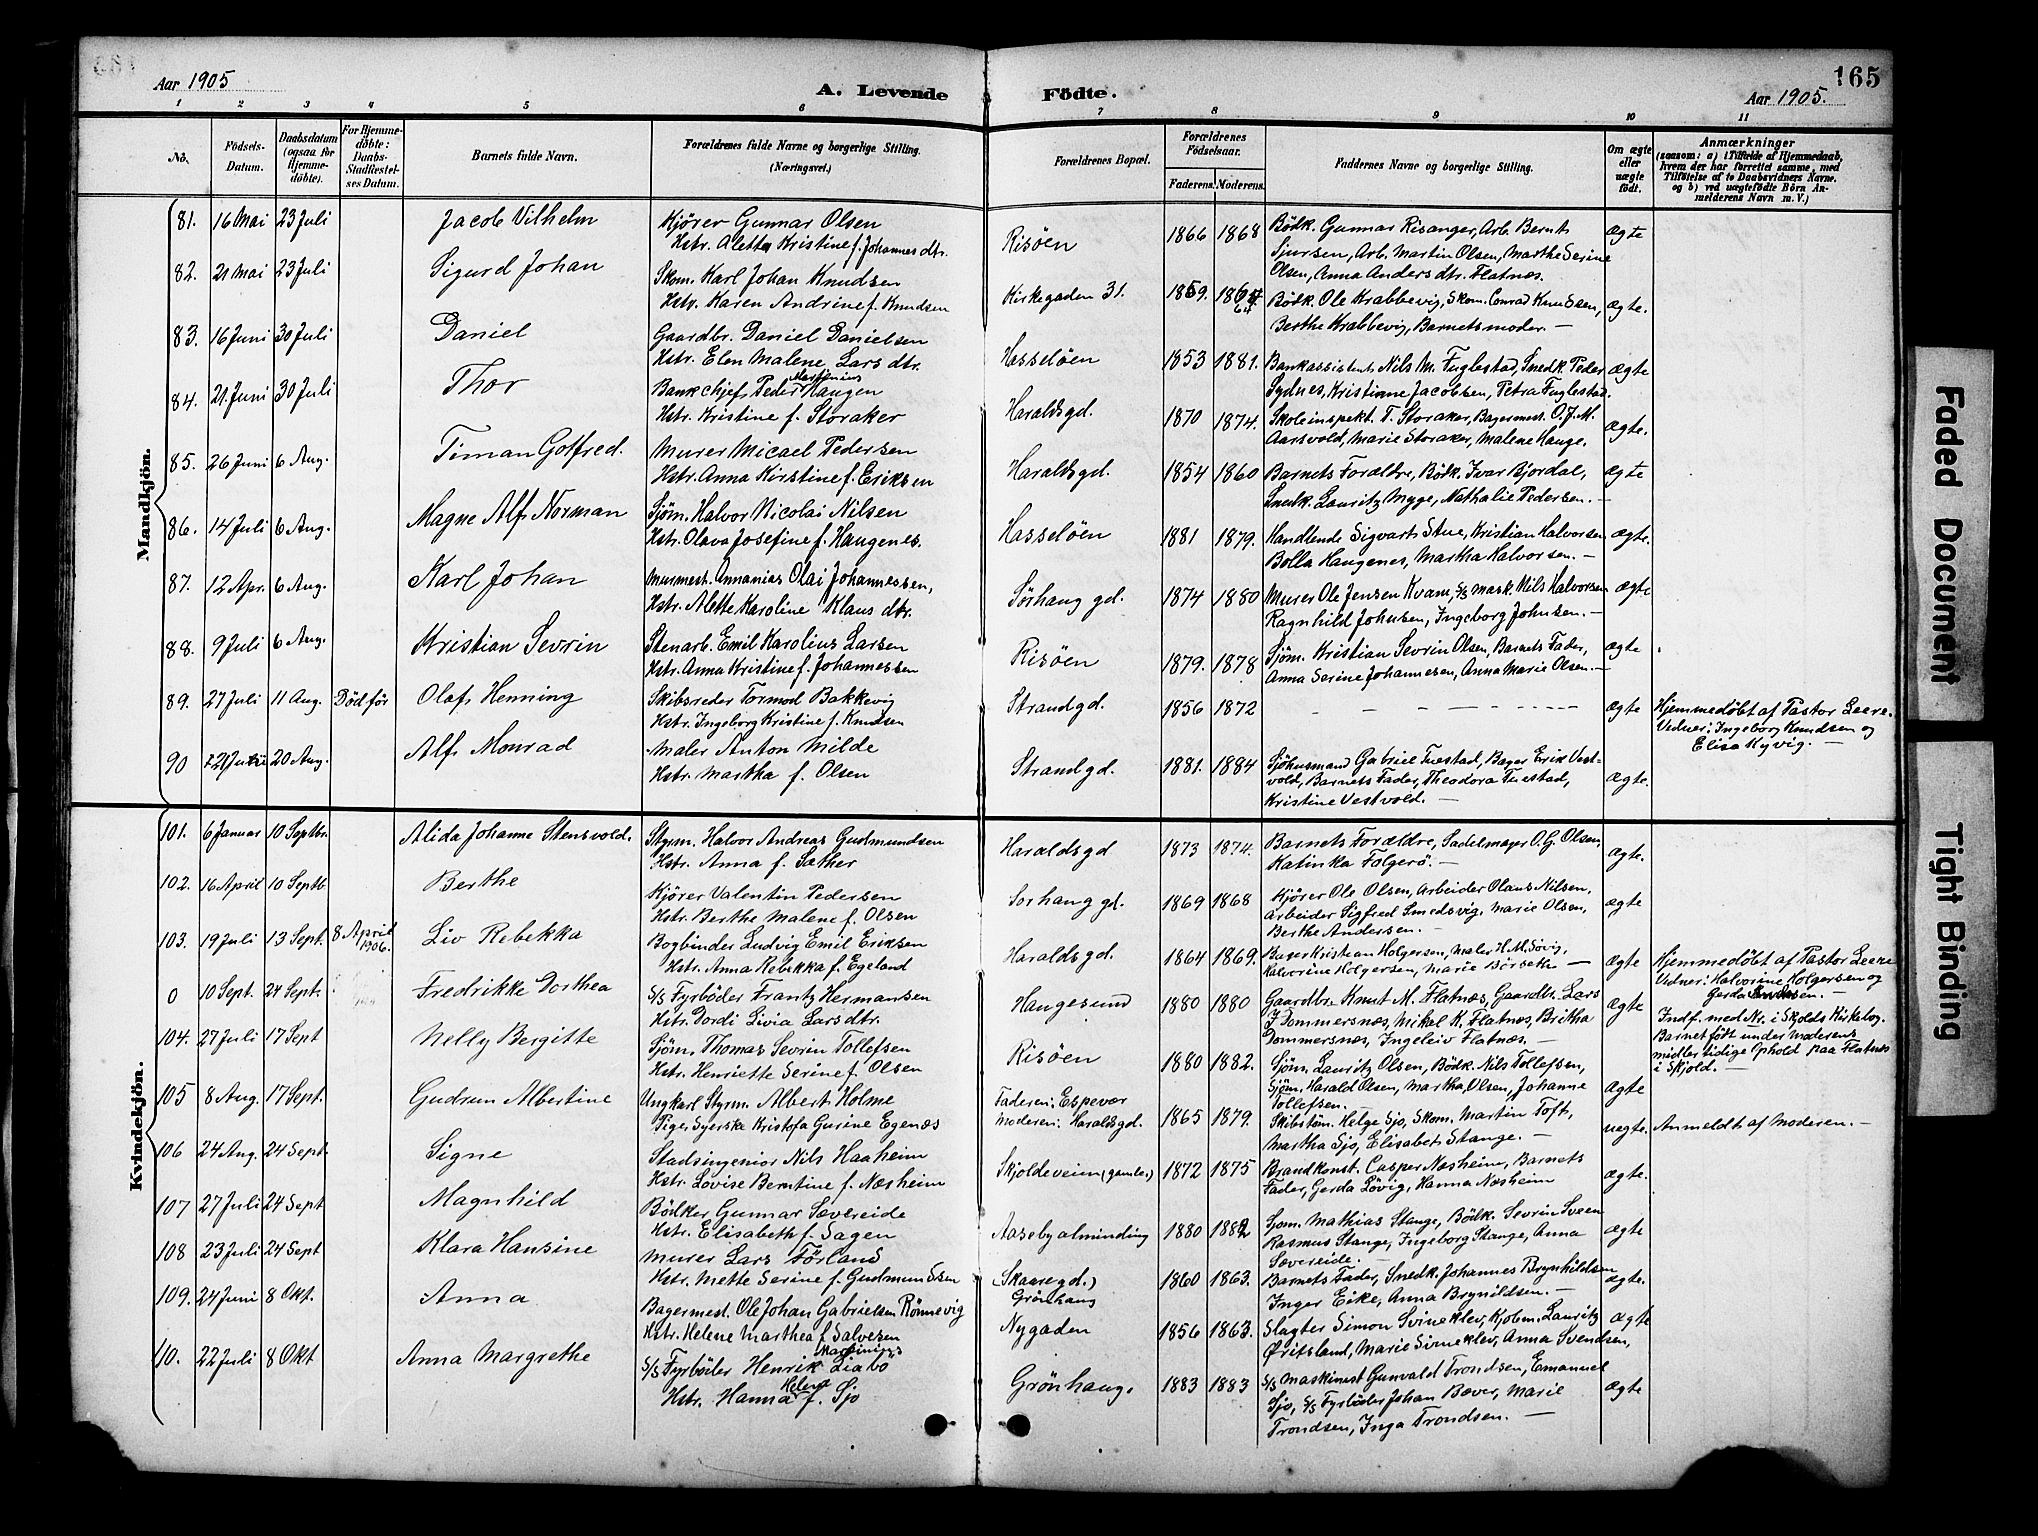 Aar 1905
A. Levende Födte.
Aar 1905.
165
1 2 3 4 5 6 7 8 9 10 11
No.
Födsels-Datum.
Daabsdatum (ogsaa for Hjemme-döbte).
For Hjemme-döbte: Daabs-Stadfæstel-ses Datum.
Barnets fulde Navn.
Forældrenes fulde Navne og borgerlige Stilling. (Næringsvei.)
Forældrenes Bopæl.
Forældrenes Födselsaar.
Faderens. Moderens.
Faddernes Navne og borgerlige Stilling.
Om ægte eller uægte födt.
Anmærkninger
(saasom: a) i Tilfælde af Hjemmedaab, hvem der har forrettet samme, med Tilföielse af to Daabsvidners Navne. og b) ved uægtefödte Börn An-melderens Navn m. V.)
Mandkjön.
81. 16 Mai 23 Juli Jacob Vilhelm Kjörer Gunnar Olsen
Hstr. Aletta Kristine f. Johannesdtr. Risöen 1866 1868 Bödk. Gunnar Risanger, Arb. Bernt
Sjursen, Arb. Martin Olsen, Marthe Serine
Olsen, Anna Andersdtr. Flatnæs. Ægte
82. 21 Mai 23 Juli Sigurd Johan Skom. Karl Johan Knudsen
Hstr. Karen Andrine f. Knudsen Kirkegaden 31. 1859. 64 Bödk. Ole Krabbevig, Skom. Conrad Knudsen,
Berthe Krabbevig, Barnets moder. — ægte.
83. 16 Juni 30 Juli Daniel Gaardbr. Daniel Danielsen
Hstr. Elen Malene Larsdtr. Hasselöen 1853 1881. Bankassistent Nils M. Fuglestad, Snedk. Peder
Sydnes, Kristinne Jacobsen, Petra Fuglestad. Ægte
84. 21. Juni 30 Juli Thor Bankchef Peder Martinius Haugen
Hstr. Kristine f. Storaker Haraldsgd. 1870 1874. Skoleinspekt. T. Storaker, Bagermest. O. J. M.
Aarsvold, Marie Storaker, Malene Hauge. ægte.
85. 26 Juni 6 Aug. Timan Gotfred. Murer Micael Pedersen
Hstr. Anna Kirstine f. Eriksen Haraldsgd. 1854 1860 Barnets Forældre, Bödk. Ivar Bjordal,
Snedk. Lauritz Myge, Nathalie Pedersen. — ægte
86. 14 Juli 6 Aug. Magne Alf Norman Sjöm. Halvor Nicolai Nilsen
Hstr. Olava Josefine f. Haugenes. Hasselöen 1881 1879. Handlende Sigvart Stue, Kristian Halvorsen
Bolla Haugenes, Martha Halvorsen. — ægte.
87. 12 Apr. 6 Aug. Karl Johan Murmest. Annanias Olai Johannessen,
Hstr. Alette Karoline Klausdtr. Sörhaug gd. 1874 1880 Murer Ole Jensen Kvam, S/S mask. Nils Halvorsen
Ragnhild Johnsen, Ingeborg Johnsen. — ægte
88. 9 Juli 6 Aug. Kristian Sevrin Stenarb. Emil Karolius Larsen
Hstr. Anna Kristine f. Johannessen Risöen 1879. 1878 Sjöm. Kristian Sevrin Olsen, Barnets Fader,
Anna Serine Johannesen, Anna Marie Olsen. — ægte
89. 27 Juli 11 Aug. Död för Olaf Henning Skibsreder Tormod Bakkevig
Hstr. Ingeborg Kristine f. Knudsen Strandgd. 1856 1872 — — — — ægte Hjemmedøbt af Pastor Leere.
Vidner: Ingeborg Knudsen og
Elisa Kyvig. —
90 20 Aug. Alf Monrad Maler Anton Milde
Hstr. Martha f. Olsen Strandgd. 1881. 1884 Sjöhusmand Gabriel Tuestad, Bager Erik Vest-
vold, Barnets Fader, Theodora Tuestad,
Kristine Vestvold. — Ægte.
Kvindekjön.
101. 6 Januar 10 Septbr. Alida Johanne Stensvold. Styrm. Halvor Andreas Gudmundsen
Hstr. Anna f. Sather Haraldsgd 1873 1874. Barnets Forældre, Sadelmager O. G. Olsen,
Katinka Folgerö. — ægte.
102. 16 April 10 Septb. Berthe Kjörer Valentin Pedersen
Hstr. Berthe Malene f. Olsen Sorhaug gd. 1869 1868 Kjörer Ole Olsen, Arbeider Olaus Nilsen,
Arbeider Sigfred Smedsvig, Marie Olsen,
Berthe Andersen. — ægte
103. 19 Juli 13 Sept. 8 April 1906. Liv Rebekka Bogbinder Ludvig Emil Eriksen
Hstr. Anna Rebekka f. Egeland Haraldsgd. 1864 1869. Kristian Holgersen, Maler H. M. Sövig,
Halvorine Holgersen, Marie Börseth — ægte Hjemmedøbt af Pastor Leere
Vidner: Halvorine Holgersen og
Gerda —
0 10 Sept. 24 Sept. Fredrikke Dorthea S/S Fyrböder Frantz Hermansen
Hstr. Dordi Livia Larsdtr. Haugesund 1880 1880 Gaardbr. Knut M. Flatnæs, Gaardbr. Lars
J Dommersnæs, Mikal K. Flatnæs, Britha
Dommersnæs, Ingeleiv Flatnæs. — ægte Indf. med No. i Skjolds Kirkebog.
Barnet født under Moderens
midlertidige Ophold paa Flatnæs
i Skjold. —
104. 27 Juli 17 Sept Nelly Bergitte Sjöm. Thomas Sevrin Tollefsen
Hstr. Henriette Serine f. Olsen Risöen 1880 1882. Sjöm. Lauritz Olsen, Bödk. Nils Tollefsen,
Sjöm. Harald Olsen, Martha Olsen, Johanne
Tollefsen. — Ægte
105 8 Aug. 17 Sept. Gudrun Albertine Ungkarl Styrm. Albert Holme
Pige, Syerske Kristofa Gurine Egenæs Faderen: Espevær
Moderen: Haraldsgd. 1865 1879. Skibstöm. Helge Sjo, Skom. Martin Toft,
Martha Sjo, Elisabet Stange. — uegte. Anmeldt af Moderen. —
106 24 Aug. 24 Sept. Signe Stadsingeniör Nils Haaheim
Hstr. Lovise Berntine f. Næsheim Skjoldeveien (gamle.) 1872 1875 Brandkonst. Casper Næsheim, Barnets
Fader, Gerda Lövig, Hanna Næsheim ægte.
107 27 Juli 24 Sept Magnhild Bödker Gunnar Sævereide
Hstr. Elisabeth f. Sagen Aasebyalminding 1880 1882 Sjom. Mathias Stange, Bödk. Sevrin Sveen
Rasmus Stange, Ingeborg Stange, Anna
Sævereide. — ægte
108 23 Juli 24 Sept Klara Hansine Murer Lars Förland
Hstr. Mette Serine f. Gudmundsen (Skaaregd.)
Grönhaug 1860 1863. Barnets Fader, Snedk. Johannes Brynhildsen
Inger Eike, Anna Brynildsen. — ægte.
109. 24 Juni 8 Okt. Anna Bagermest. Ole Johan Gabrielsen Rönnevig
Hstr. Helene Marthea f. Salvesen Nygaden 1856 1863. Slagter Simon Svineklev, Kjobm. Lauritz
Öritsland, Marie Svineklev, Anna Svendsen, ægte
10. 22 Juli 8 Okt Anna Margrethe S/S Fyrböder Henrik Martinius Liabö
Hstr. Hanna Helena f. Sjo Grönhaug. 1883 1883 S/S Maskinist Gunvald Trondsen, Emanuel
Sjo, S/S Fyrböder Johan Bæver, Marie
Trondsen, Inga Trondsen. — ægte
Faded Document
Tight Binding